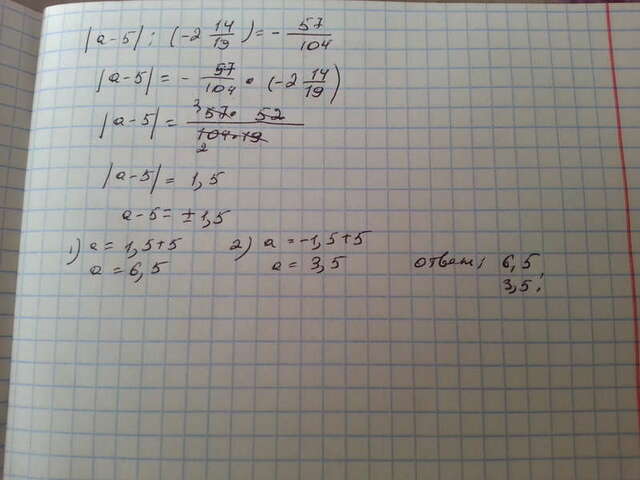 |a-5| : (-2 14/19) = - 57/104
|a-5| = - 57/104 • (-2 14/19)
|a-5| = 3 57 • 52 / 104 • 19 2
|a-5| = 1,5
a-5 = ±1,5
1) a = 1,5+5 2) a = -1,5+5
a = 6,5 a = 3,5 ответ: 6,5
3,5;